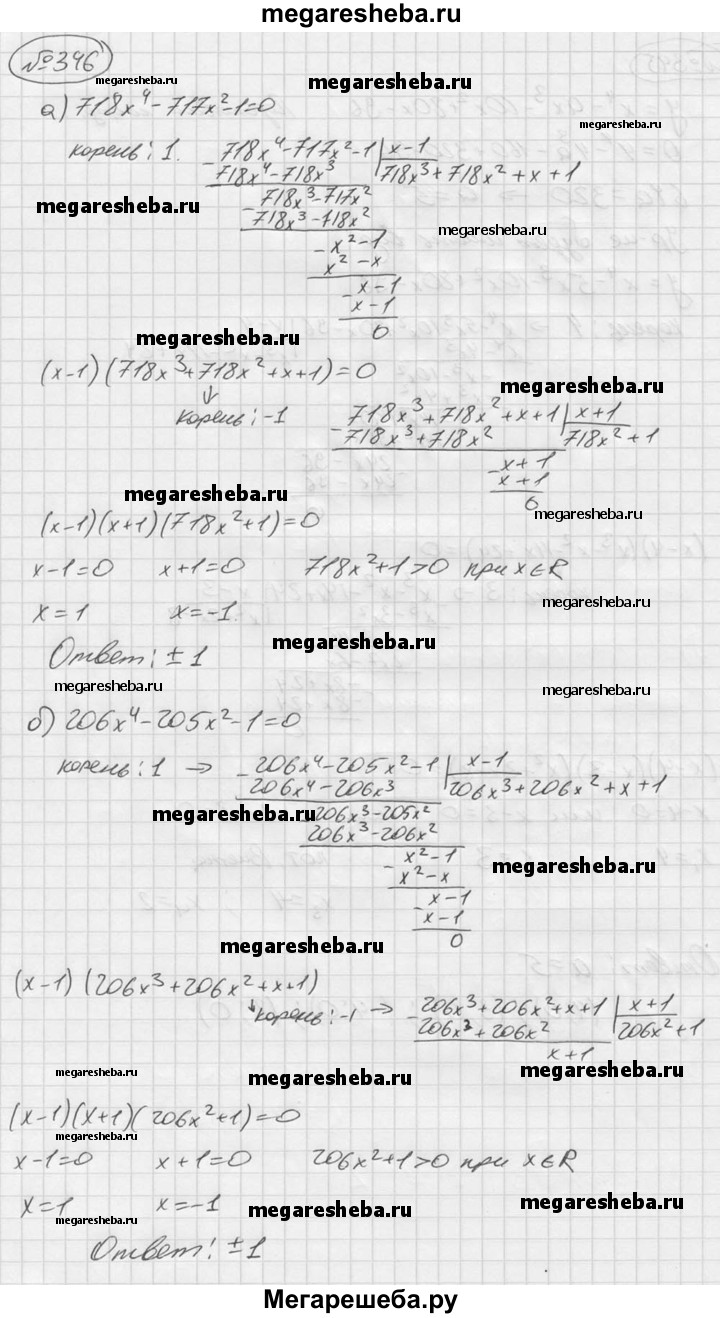 megaresheba.ru
№346
megaresheba.ru
megaresheba.ru
а) 718x⁴-717x²-1=0
megaresheba.ru
корень: 1.
718x⁴-717x²-1 | x-1
718x⁴-718x³
718x³+718x²+x+1
megaresheba.ru
718x³-717x²
718x³-718x²
megaresheba.ru
x²-1
x²-x
x-1
x-1
0
megaresheba.ru
(x-1)(718x³+718x²+x+1)=0
megaresheba.ru
↓
корень: -1
718x³+718x²+x+1 | x+1
718x³+718x²
718x²+1
x+1
x+1
0
megaresheba.ru
megaresheba.ru
(x-1)(x+1)(718x²+1)=0
x-1=0 x+1=0 718x²+1>0 при x∈R
megaresheba.ru
x=1 x=-1.
megaresheba.ru
Ответ: ±1
megaresheba.ru
megaresheba.ru
б) 206x⁴-205x²-1=0
корень: 1 →
206x⁴-205x²-1 | x-1
206x⁴-206x³
206x³+206x²+x+1
megaresheba.ru
206x³-205x²
206x³-206x²
x²-1
x²-x
megaresheba.ru
x-1
x-1
0
megaresheba.ru
(x-1)(206x³+206x²+x+1)
↓ корень: -1 →
206x³+206x²+x+1 | x+1
206x³+206x²
206x²+1
x+1
megaresheba.ru
megaresheba.ru
megaresheba.ru
(x-1)(x+1)(206x²+1)=0
megaresheba.ru
x-1=0 x+1=0 206x²+1>0 при x∈R
x=1 x=-1
megaresheba.ru
megaresheba.ru
megaresheba.ru
Ответ: ±1
Мегарешеба.ру